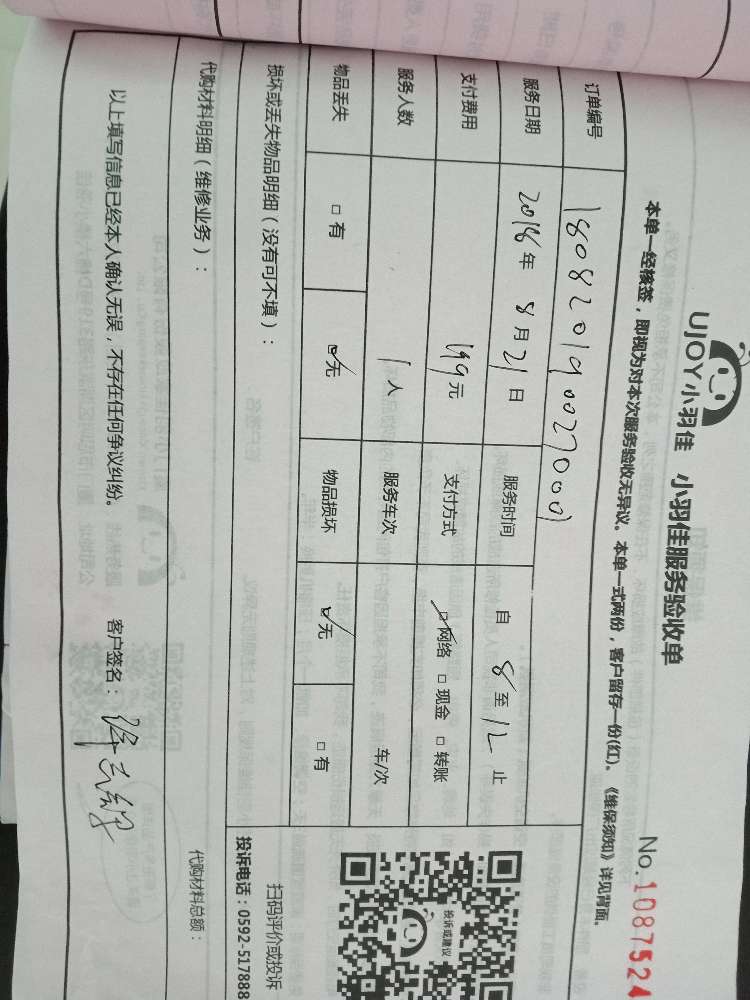 UJOY小羽佳 小羽佳服务验收单
No.1087524
本单一经核签，即视为对本次服务验收无异议。本单一式两份，客户留存一份(红)。《维保须知》详见背面。
订单编号 180820190027000
服务日期 2018年 8月21日 服务时间 自 8 至 12 止
支付费用 199元 支付方式 ☑网络 □现金 □转账
服务人数 1人 服务车次 车/次
物品丢失 □有 ☑无 物品损坏 ☑无 □有
损坏或丢失物品明细（没有可不填）：
投诉或建议
扫码评价或投诉
投诉电话：0592-517888
代购材料明细（维修业务）： 代购材料总额：
以上填写信息已经本人确认无误，不存在任何争议纠纷。 客户签名：